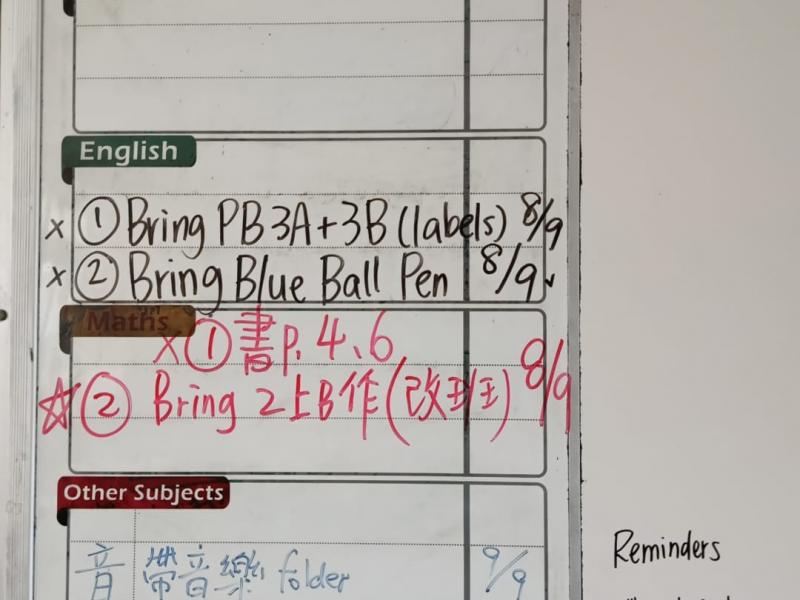 English
x ① Bring PB 3A+3B (labels) 8/9
x ② Bring Blue Ball Pen 8/9
Maths
x ① 書 p. 4、6
☆ ② Bring 2上B作 (改班) 8/9
Other Subjects
音 帶音樂 folder 9/9
Reminders